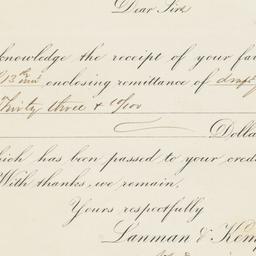 Dear Sirs
knowledge the receipt of your fav
13th inst enclosing remittance of draft
Thirty three & 10/100
Dolla
hich has been passed to your cred
With thanks, we remain.
Yours respectfully
Lanman & Kemp